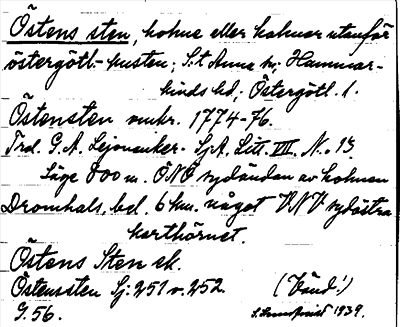 Östens sten, holme eller holmar utanför
östergötl.-kusten; S:t Anna sn; Hammar-
kinds hd; Östergötl. l.
Östensten omkr. 1774-76.
Trol. G. A. Lejonanker. SjA, Litt. VIII, N:o 13.
Läge 800 m. ÖNÖ sydändan av holmen
Dromhals, bel. 6 km. något VNV sydöstra
karthörnet.
Östens Sten ek.
Östenssten Sj: 251 o. 252. (Vänd!)
G. 56. 1939.